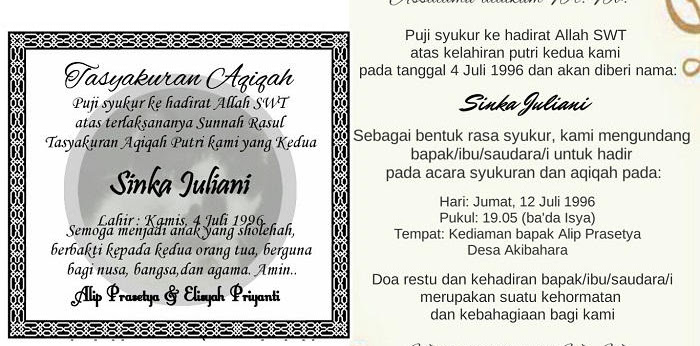 Tasyakuran Aqiqah
Puji syukur ke hadirat Allah SWT
atas terlaksananya Sunnah Rasul
Tasyakuran Aqiqah Putri kami yang Kedua
Sinka Juliani
Lahir : Kamis, 4 Juli 1996
Semoga menjadi anak yang sholehah,
berbakti kepada kedua orang tua, berguna
bagi nusa, bangsa,dan agama. Amin..
Alip Prasetya & Elisyah Priyanti
Puji syukur ke hadirat Allah SWT
atas kelahiran putri kedua kami
pada tanggal 4 Juli 1996 dan akan diberi nama:
Sinka Juliani
Sebagai bentuk rasa syukur, kami mengundang
bapak/ibu/saudara/i untuk hadir
pada acara syukuran dan aqiqah pada:
Hari: Jumat, 12 Juli 1996
Pukul: 19.05 (ba'da Isya)
Tempat: Kediaman bapak Alip Prasetya
Desa Akibahara
Doa restu dan kehadiran bapak/ibu/saudara/i
merupakan suatu kehormatan
dan kebahagiaan bagi kami